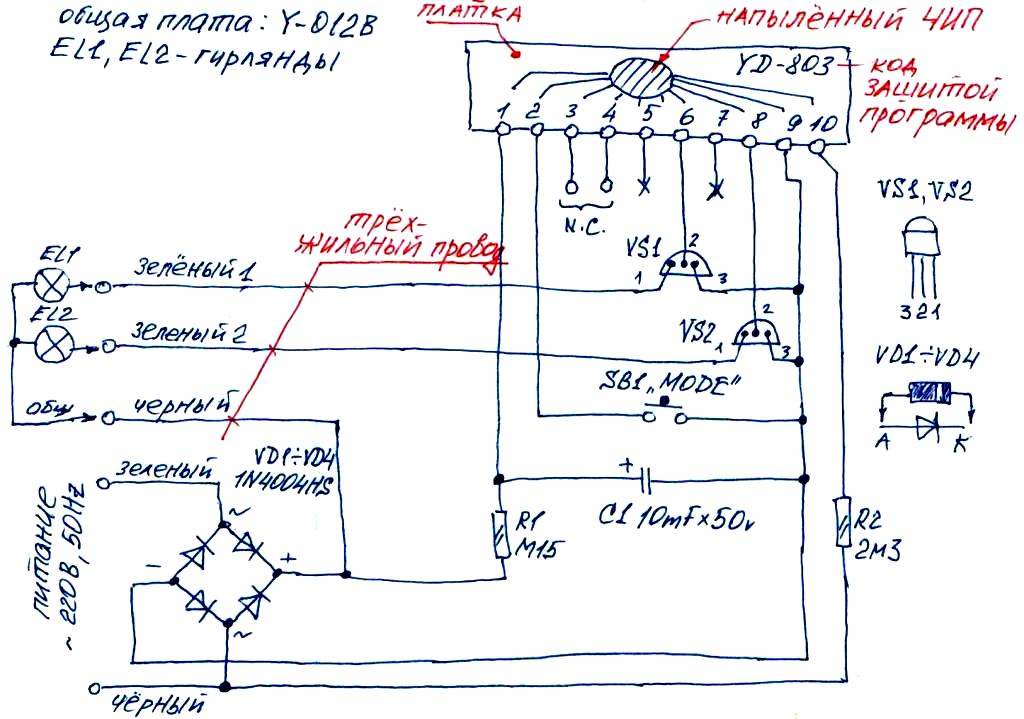 общая плата: Y-012B
EL1, EL2 - гирлянды
ПЛАТКА
НАПЫЛЁННЫЙ ЧИП
YD-803
КОД
ЗАШИТОЙ
ПРОГРАММЫ
1 2 3 4 5 6 7 8 9 10
N.C.
VS1, VS2
321
трёх-
жильный провод
EL1
зелёный 1
VS1
2
1
3
EL2
зеленый 2
VS2
2
1
3
VD1÷VD4
А
К
SB1 „MODE”
общ
черный
зеленый
VD1÷VD4
1N4004HS
питание
~ 220В, 50Hz
~
-
+
~
+
C1 10mF×50v
R1
M15
R2
2M3
чёрный